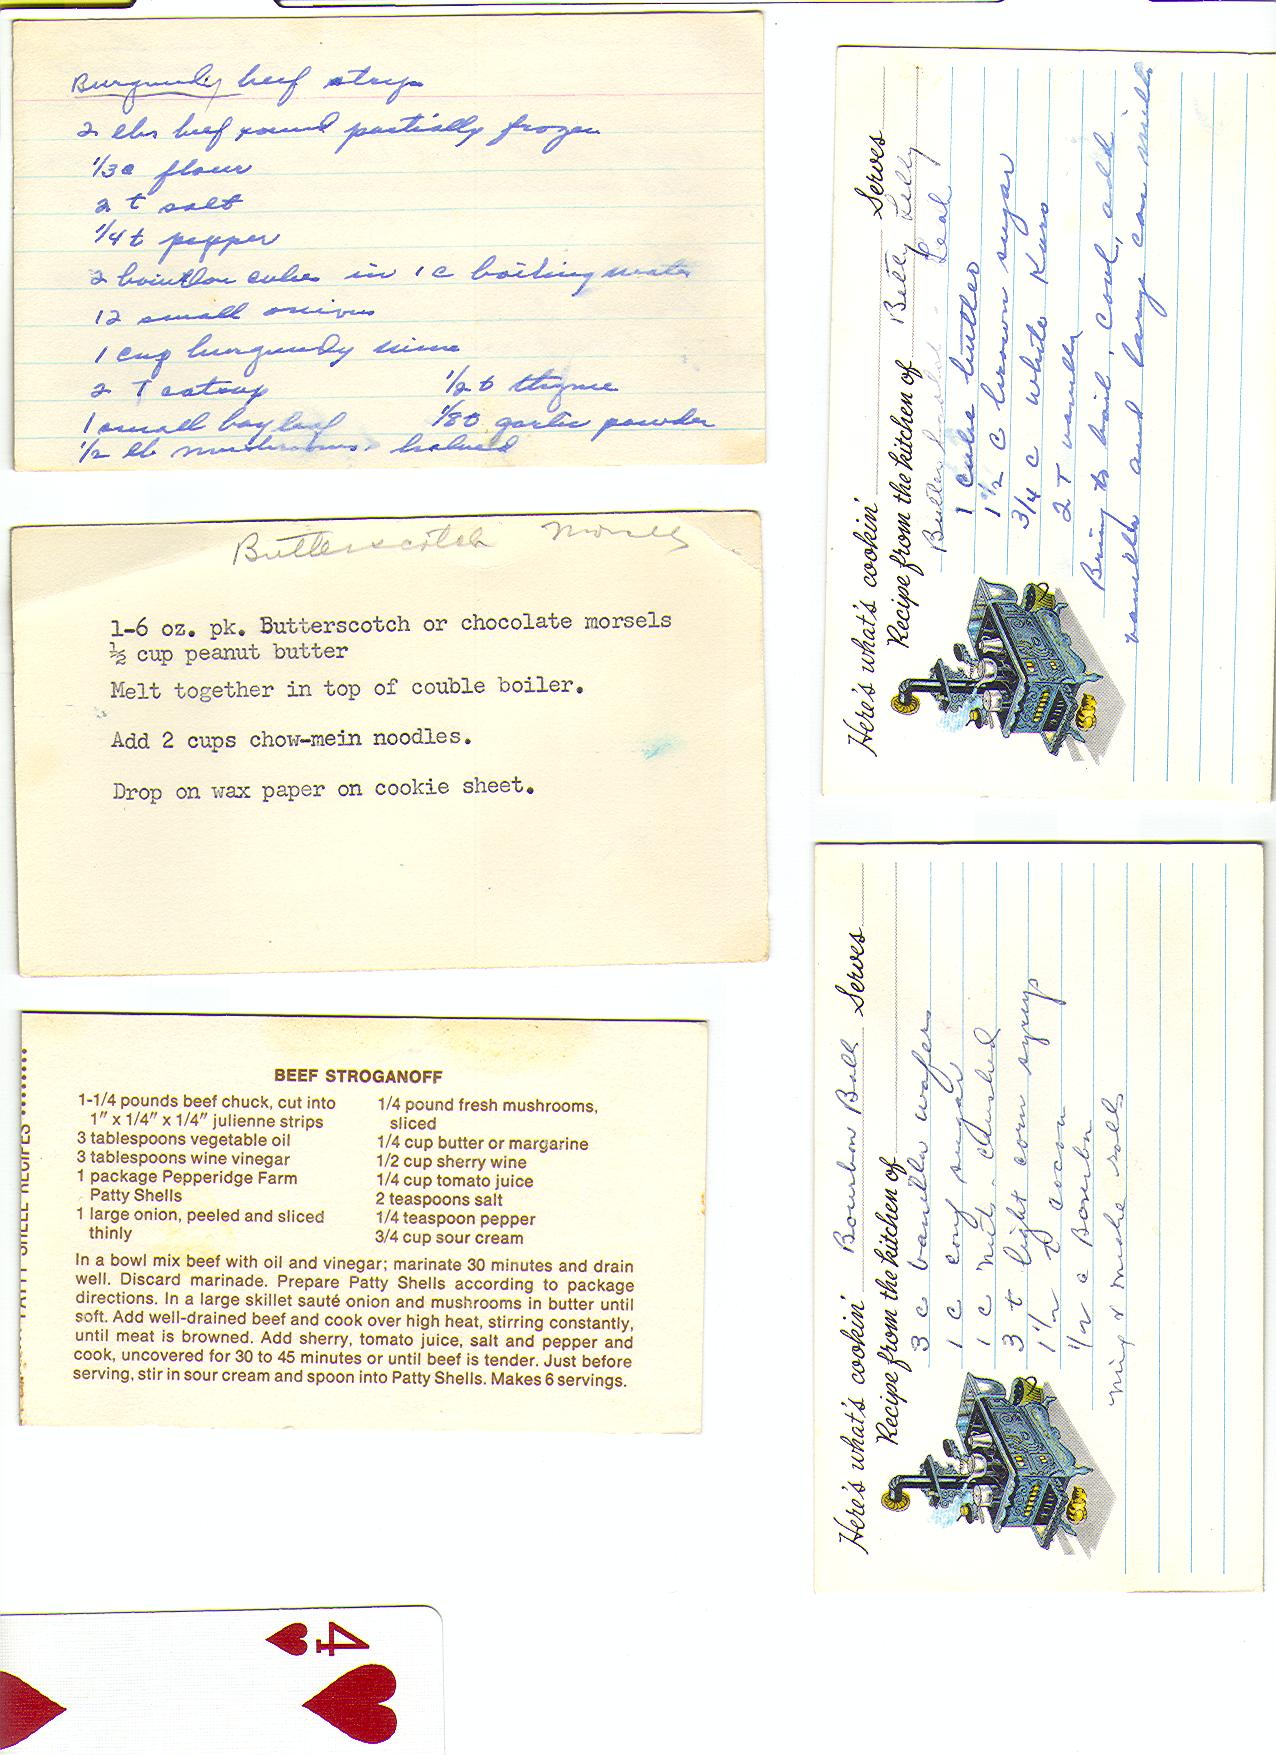 Burgundy beef strips
2 lbs beef round partially frozen
1/3 c flour
2 t salt
1/4 t pepper
2 bouillon cubes in 1 c boiling water
12 small onions
1 cup burgundy wine
2 T catsup 1/2 t thyme
1 small bay leaf 1/8 t garlic powder
1/2 lb mushrooms halved
Butterscotch Morsels
1-6 oz. pk. Butterscotch or chocolate morsels
½ cup peanut butter
Melt together in top of couble boiler.
Add 2 cups chow-mein noodles.
Drop on wax paper on cookie sheet.
PATTY SHELL RECIPES
BEEF STROGANOFF
1-1/4 pounds beef chuck, cut into
1" x 1/4" x 1/4" julienne strips
3 tablespoons vegetable oil
3 tablespoons wine vinegar
1 package Pepperidge Farm
Patty Shells
1 large onion, peeled and sliced
thinly
1/4 pound fresh mushrooms,
sliced
1/4 cup butter or margarine
1/2 cup sherry wine
1/4 cup tomato juice
2 teaspoons salt
1/4 teaspoon pepper
3/4 cup sour cream
In a bowl mix beef with oil and vinegar; marinate 30 minutes and drain
well. Discard marinade. Prepare Patty Shells according to package
directions. In a large skillet sauté onion and mushrooms in butter until
soft. Add well-drained beef and cook over high heat, stirring constantly,
until meat is browned. Add sherry, tomato juice, salt and pepper and
cook, uncovered for 30 to 45 minutes or until beef is tender. Just before
serving, stir in sour cream and spoon into Patty Shells. Makes 6 servings.
4
Here's what's cookin' Serves
Recipe from the kitchen of Betty Kelly
1 cube butter
1 1/2 c brown sugar
3/4 c white Karo
2 T vanilla
Bring to boil, cool, add
vanilla and large can milk
Here's what's cookin' Bourbon Ball Serves
Recipe from the kitchen of
3 c vanilla wafers
1 c conf sugar
1 c nut, crushed
3 t light corn syrup
1 1/2 t cocoa
1/2 c Bourbn
mix & make rolls